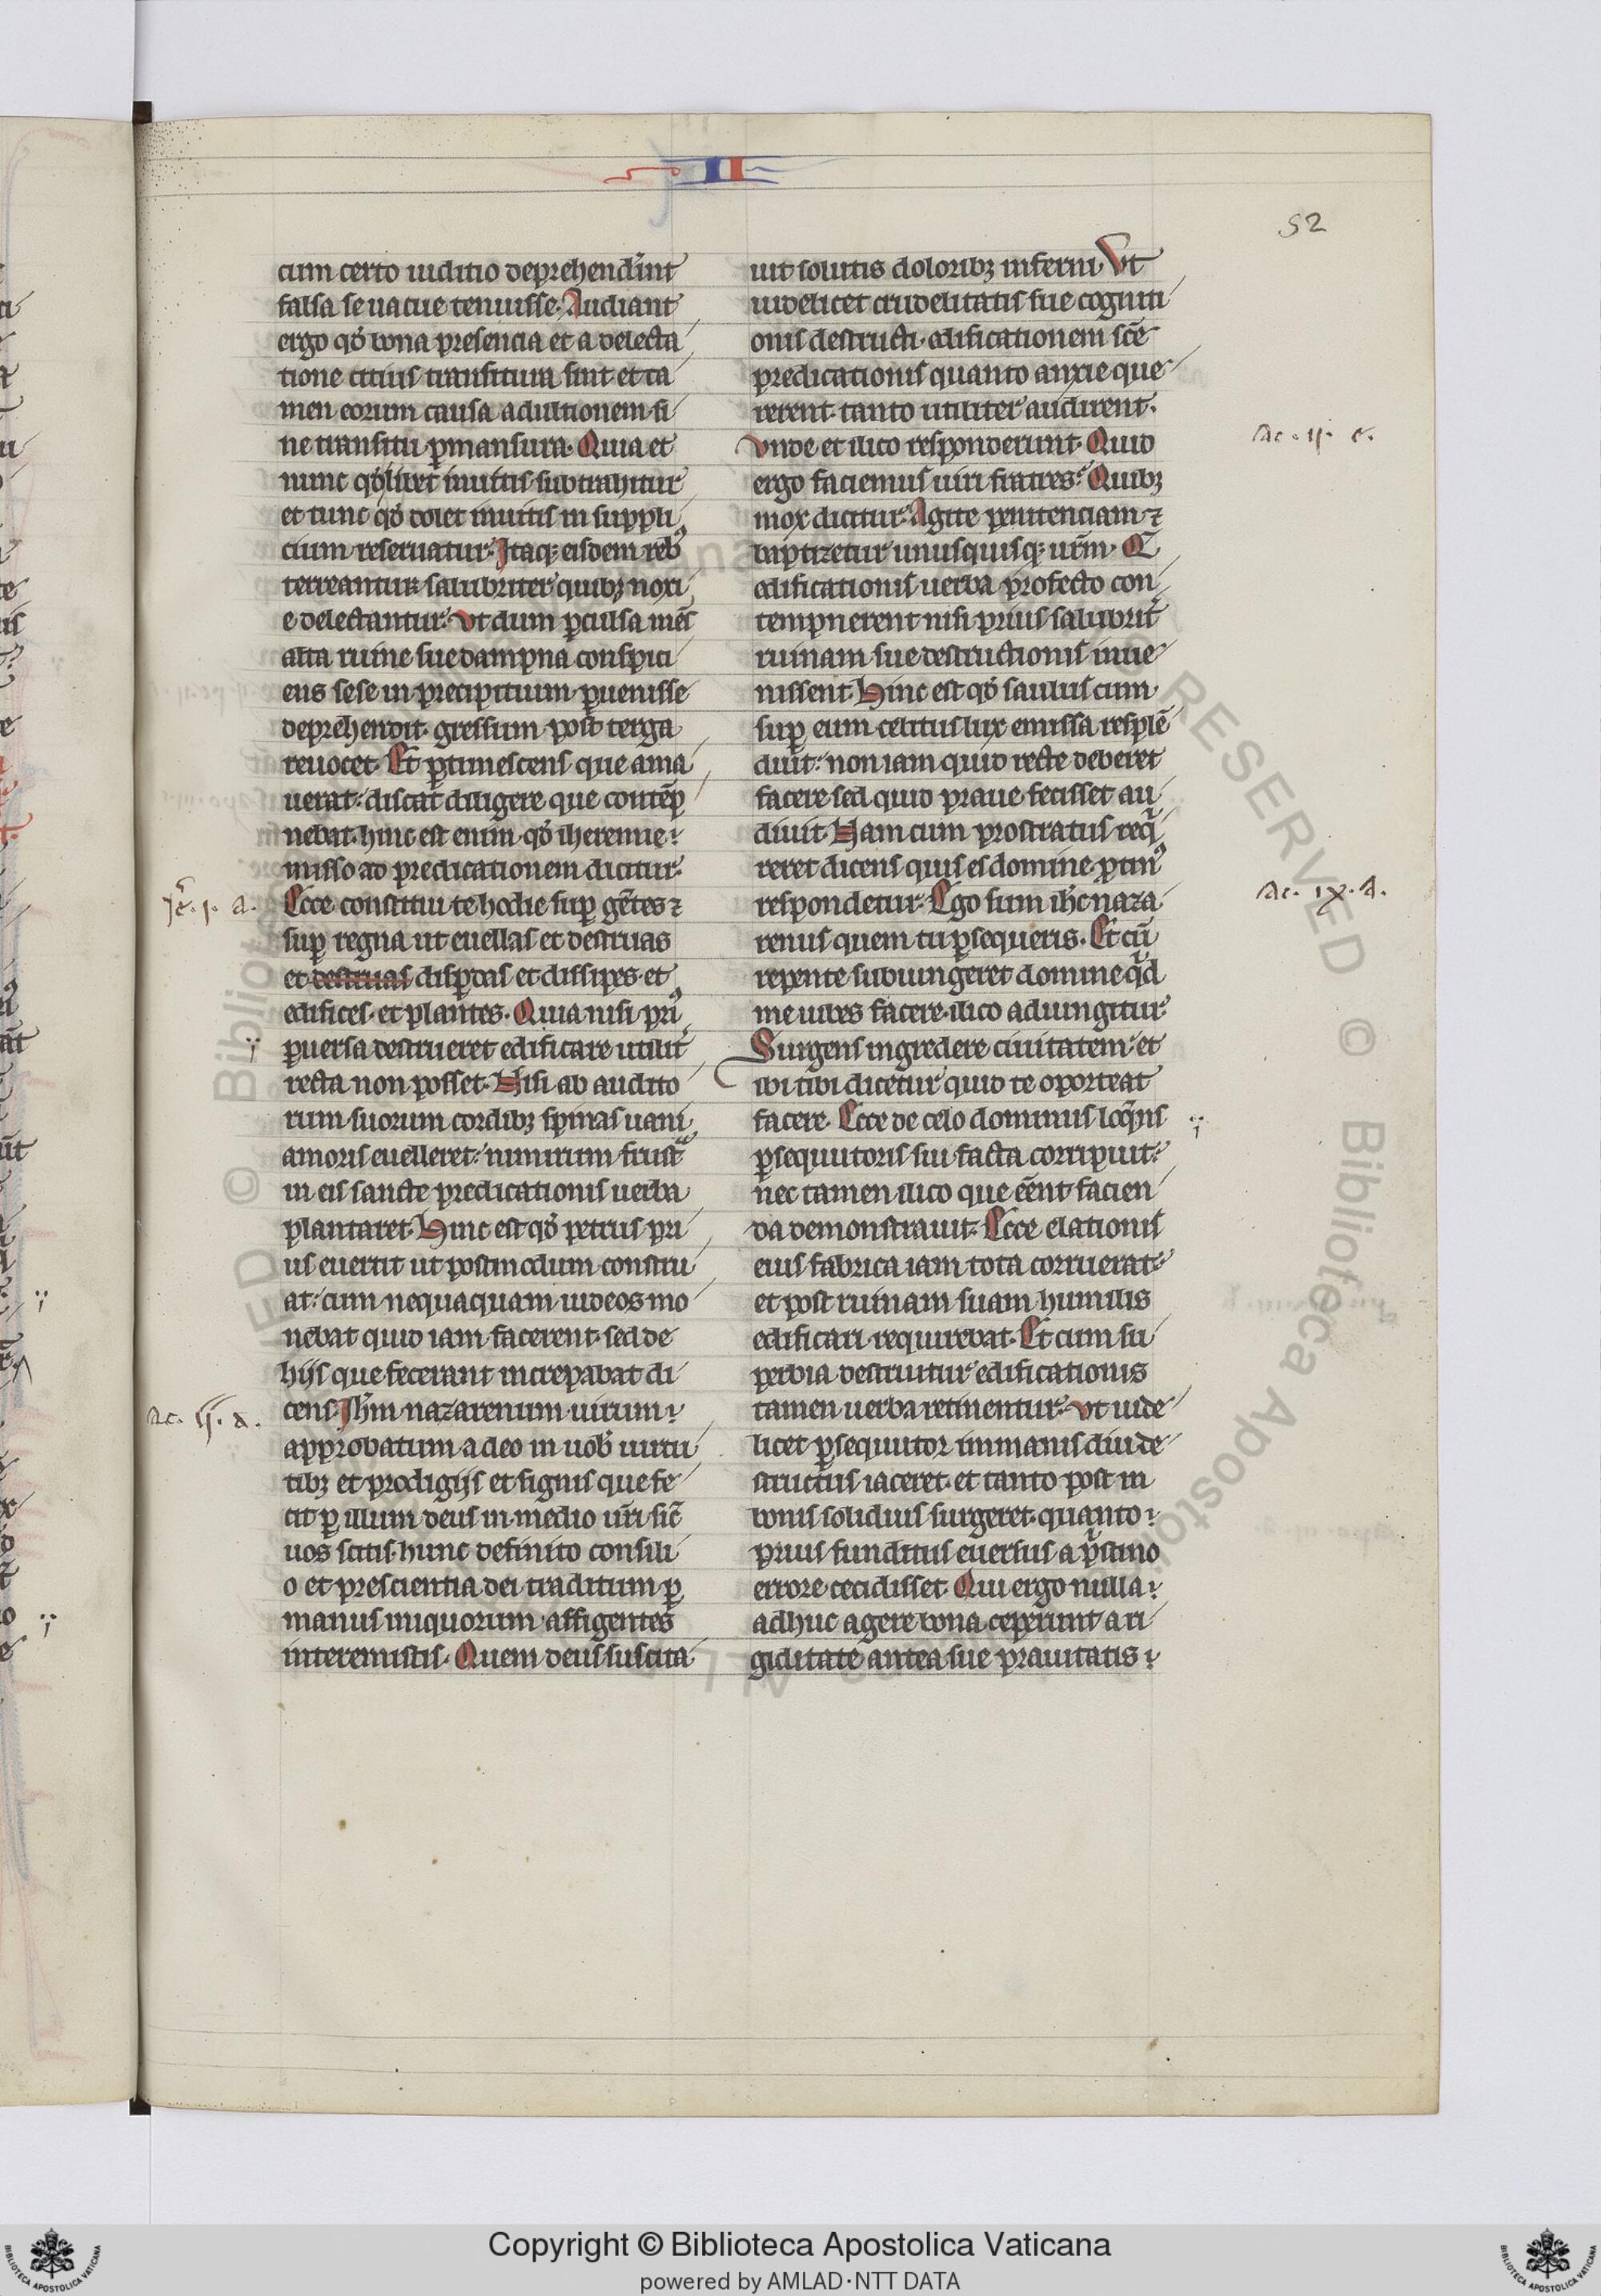 II
52
cum certo iuditio deprehend̾int
falsa se uacue tenuisse. Audiant
ergo qd̾ bona presencia et a delecta
tione citius transitura sint et ta
men eorum causa ad ultionem si
ne transitu ꝑmansura. Quia et
nunc qd̾ libet inuitis subtrahitur
et tunc qd̾ dolet inuitis in suppli
cium reseruatur. Itaqꝫ eisdem rebꝰ
terreantur salubriter quibꝫ noxi
e delectantur. Vt dum ꝑculsa mēs
alta ruine sue dampna conspici
ens sese in precipitium ꝑuenisse
deprehendit. gressum post terga
reuocet. Et ꝑtimescens que ama
uerat: discat diligere que contēp
nebat. hinc est enim qd̾ iheremie
misso ad predicationem dicitur.
Ecce constitui te hodie suꝑ gētes ⁊
suꝑ regna ut euellas et destruas
et destruas disꝑdas et dissipes. et
edifices. et plantes. Quia nisi priꝰ
ꝑuersa destrueret edificare utilit̾
recta non posset. Nisi ab audito
rum suorum cordibꝫ spinas uani
amoris euelleret: nimirum frustᵃ
in eis sancte predicationis uerba
plantaret. Hinc est qd̾ petrus pri
us euertit ut postmodum constru
at: cum nequaquam iudeos mo
nebat quid iam facerent. sed de
hijs que fecerant increpabat di
cens. Ih̄m nazarenum uirum
approbatum a deo in uob̾ uirtu
tibꝫ et prodigijs et signis que fe
cit ꝑ illum deus in medio ur̄i sic̄
uos scitis. hunc definito consili
o et prescientia dei traditum ꝑ
manus iniquorum affigentes
interemistis. Quem deus suscita
Je. i. a.
Ac. ii. d.
uit solutis doloribꝫ inferni. Vt
uidelicet crudelitatis sue cogniti
onis destructi. edificationem sc̄e
predicationis quanto anxie que
rerent. tanto utiliter audirent.
Vnde et ilico responderunt. Quid
ergo faciemus uiri fratres? Quibꝫ
mox dicitur. Agite penitenciam ⁊
baptizetur unusquisqꝫ ur̄m. Q̄
edificationis uerba profecto con
tempnerent nisi prius salubrit̾
ruinam sue destructionis inue
nissent. Hinc est qd̾ saulus cum
suꝑ eum celitus lux emissa resplē
duit: non iam quid recte deberet
facere sed quid praue fecisset au
diuit. Nam cum prostratus req̾
reret dicens quis es domine. ꝓtinꝰ
respondetur. Ego sum ih̄c naza
renus quem tu ꝑsequeris. Et cū
repente subiungeret domine q̾d
me iubes facere. ilico adiungitur
Surgens ingredere ciuitatem. et
ibi tibi dicetur quid te oporteat
facere. Ecce de celo dominus loq̄ns
ꝑsequutoris sui facta corripuit.
nec tamen ilico que eēnt facien
da demonstrauit. Ecce elationis
eius fabrica iam tota corruerat.
et post ruinam suam humilis
edificari requirebat. Et cum su
perbia destruitur edificationis
tamen uerba retinentur. Vt uide
licet ꝑsequutor immanis diu de
structus iaceret. et tanto post in
bonis solidius surgeret. quanto
prius funditus euersus a p̾stino
errore cecidisset. Qui ergo nulla
adhuc agere bona ceperunt a ri
giditate antea sue prauitatis
Ac. ii. e.
Ac. ix. a.
Copyright © Biblioteca Apostolica Vaticana
powered by AMLAD·NTT DATA